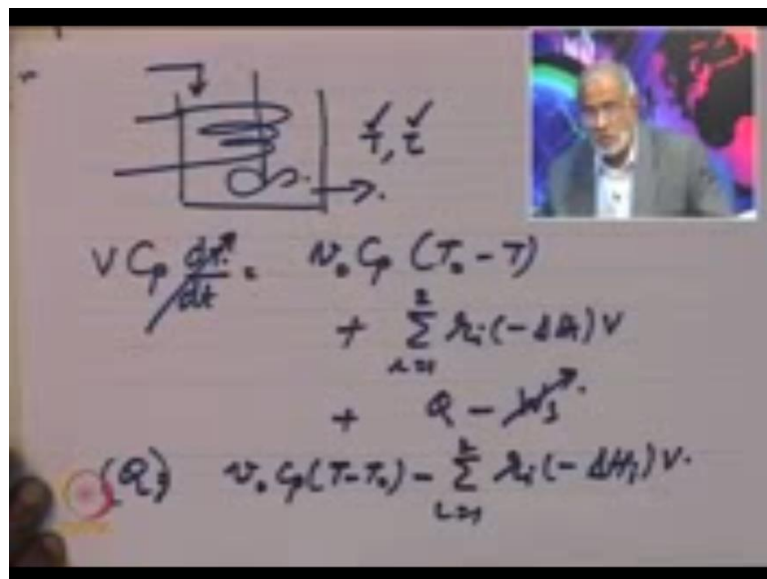 T, τ
V Cp dT/dt = v₀ Cp (T₀ - T)
+ Σ i=1 2 rᵢ (-ΔHᵢ) V
+ Q - Ws
(Q) = v₀ Cp (T - T₀) - Σ i=1 2 rᵢ (-ΔHᵢ) V.